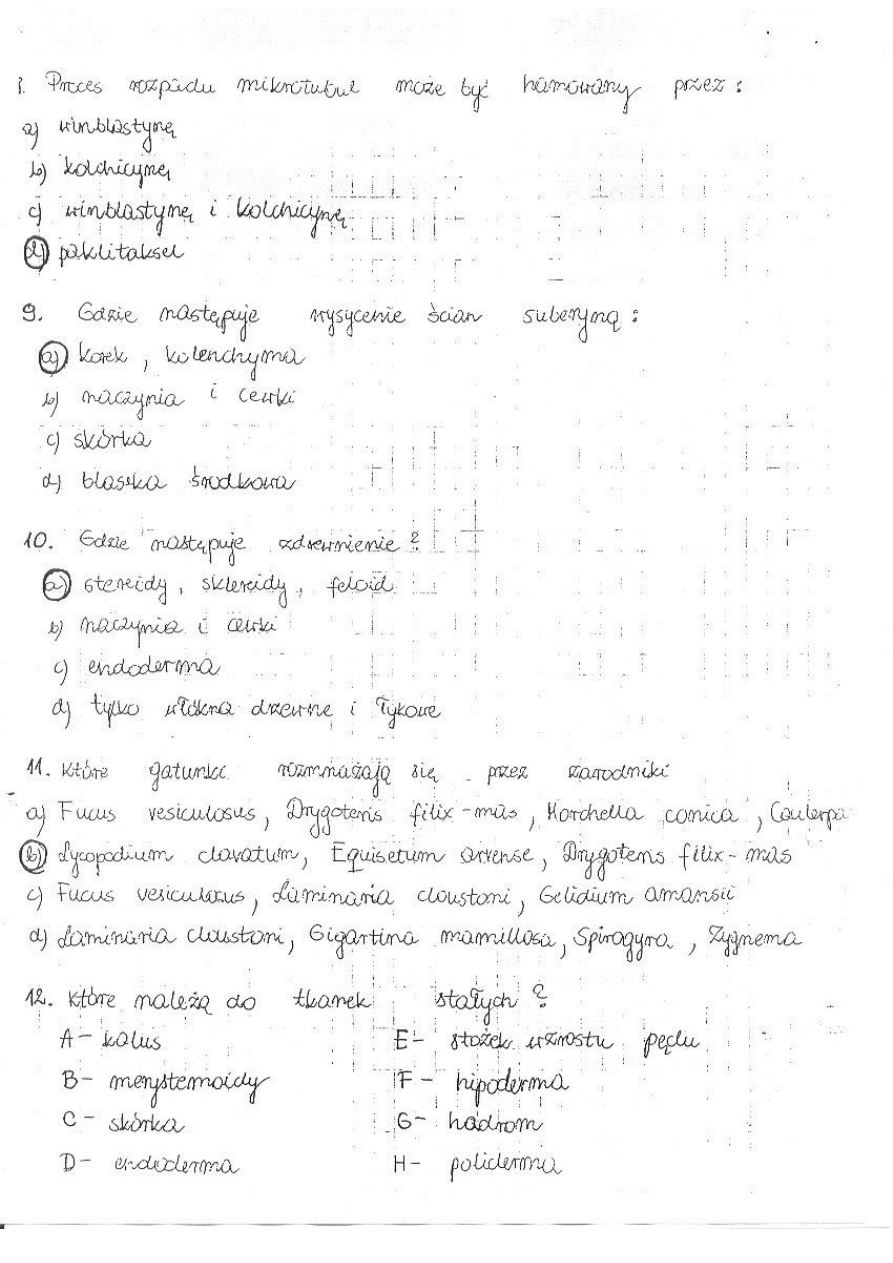 1. Proces rozpadu mikrotubul może być hamowany przez :
a) winblastynę
b) kolchicynę
c) winblastynę i kolchicynę
d) paklitaksel
9. Gdzie następuje wysycenie ścian suberyną :
a) korek , kolenchyma
b) naczynia i cewki
c) skórka
d) blaszka środkowa
10. Gdzie następuje zdrewnienie ?
a) stereidy , sklereidy , feloid
b) naczynia i cewki
c) endoderma
d) tylko włókna drzewne i łykowe
11. Które gatunki rozmnażają się przez zarodniki
a) Fucus vesiculosus , Drygoteris filix - mas , Morchella conica , Caulerpa
b) Lycopodium clavatum , Equisetum arvense , Drygoteris filix - mas
c) Fucus vesiculosus , Laminaria cloustoni , Gelidium amansii
d) Laminaria cloustoni , Gigartina mamillosa , Spirogyra , Zygnema
12. Które należą do tkanek stałych ?
A - kalus E - stożek wzrostu pędu
B - merystemoidy F - hipoderma
C - skórka G - hadrom
D - endoderma H - poliderma